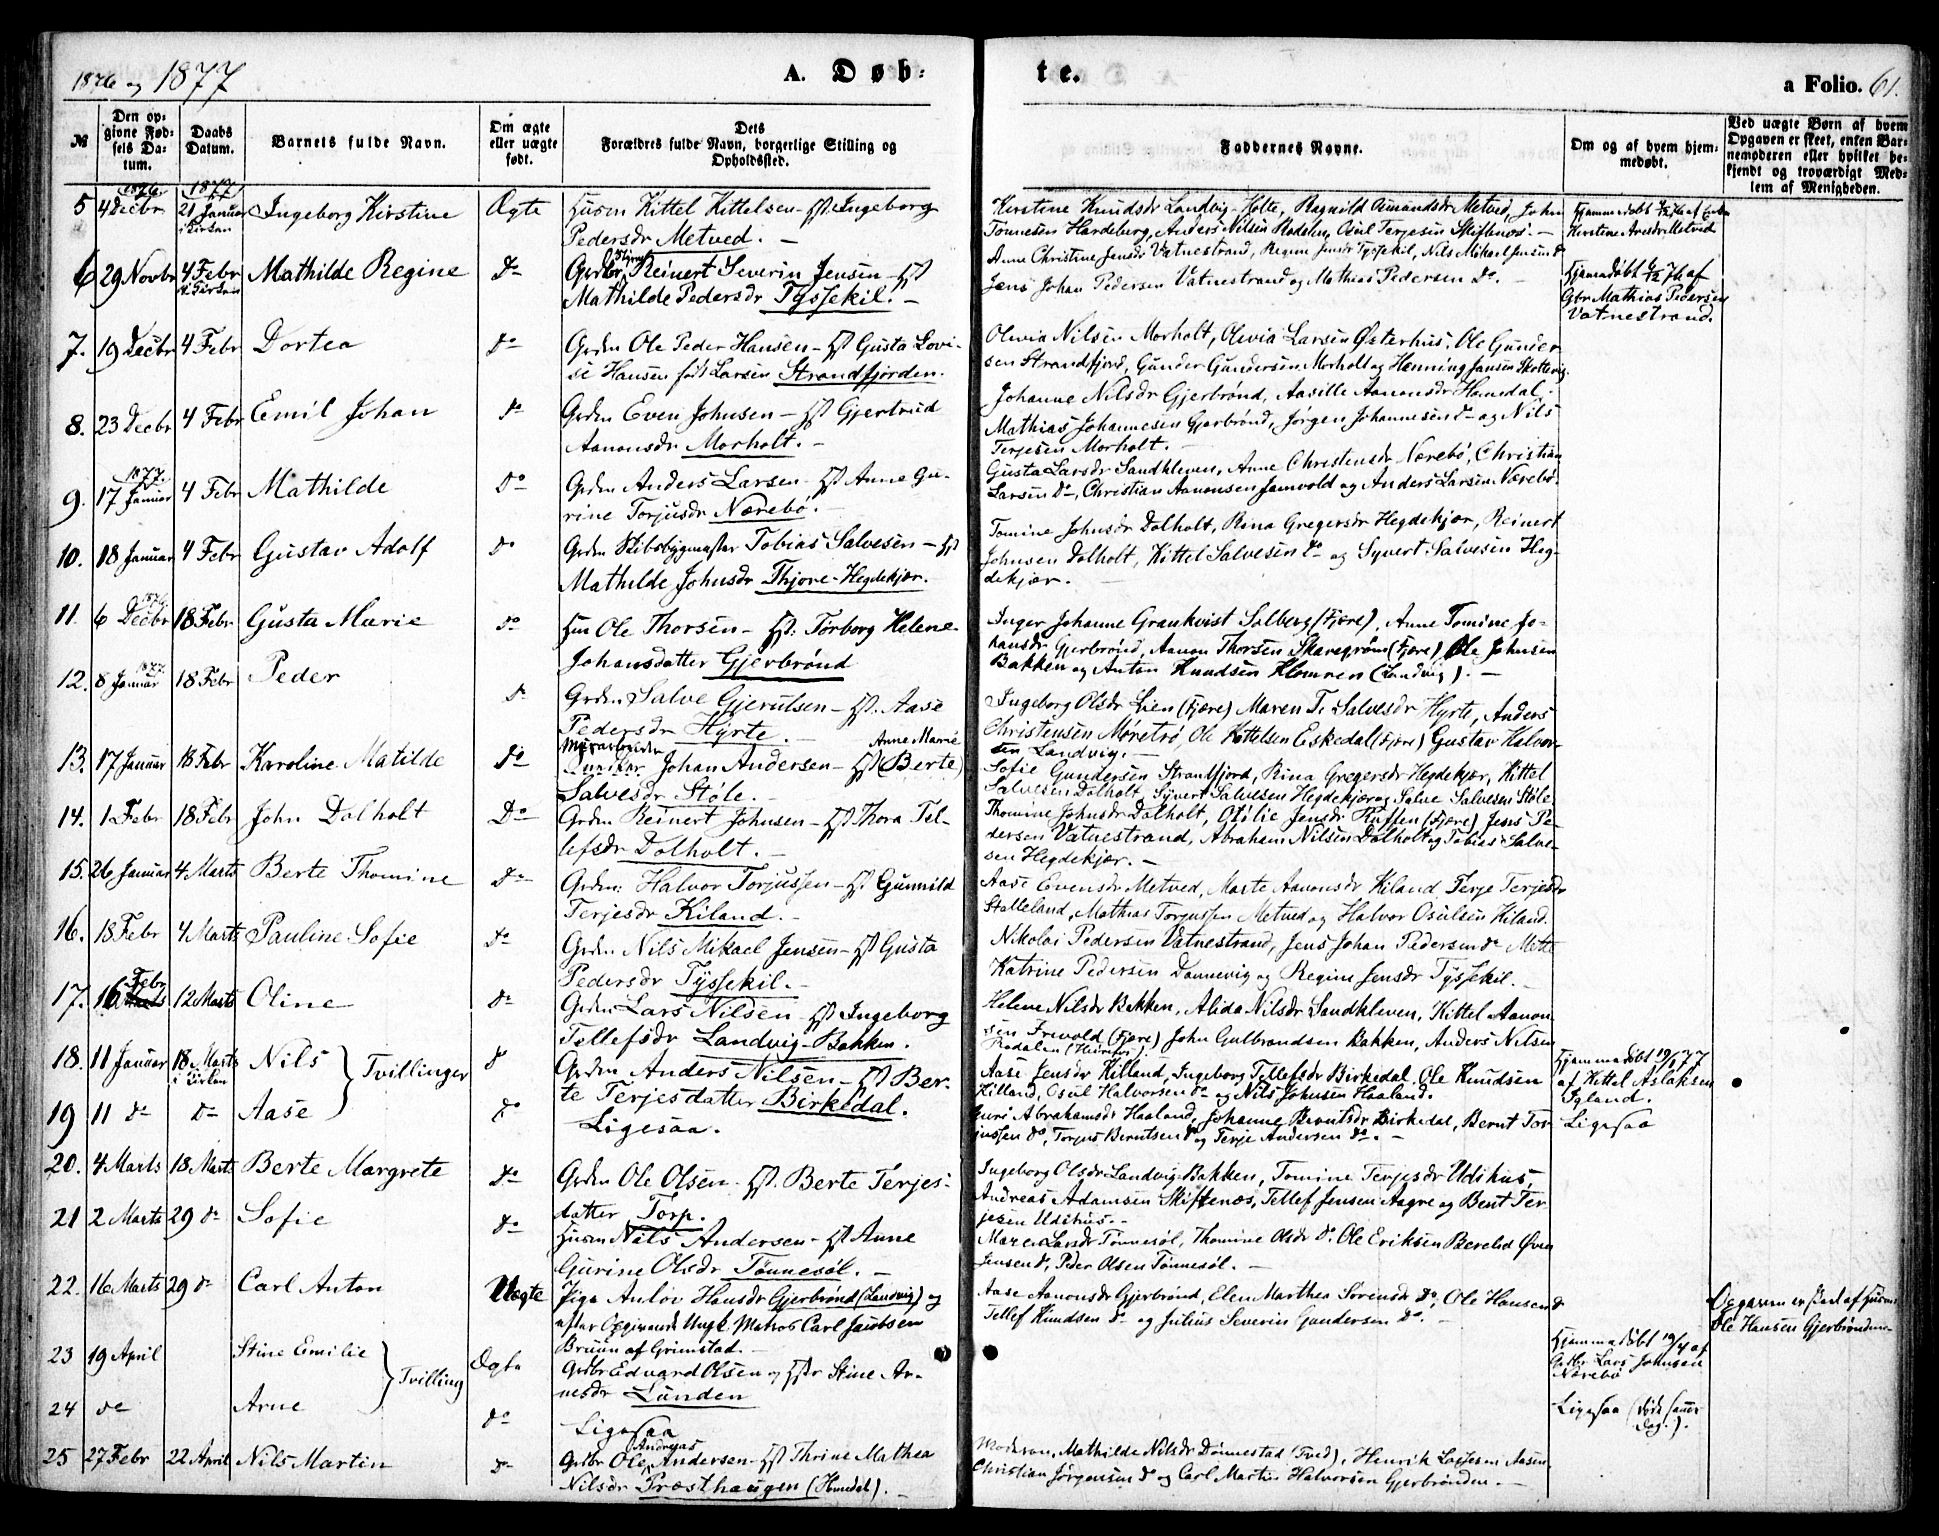 1876 og 1877
A. Døb-
te.
a Folio. 61.
№
Den opgivne Fødsels Datum.
Daabs Datum.
Barnets fulde Navn.
Om ægte eller uægte født.
Dets Forældres fulde Navn, borgerlige Stilling og Opholdssted.
Faddernes Navne.
Om og af hvem hjemmedøbt.
Ved uægte Børn af hvem Opgaven er skeet, enten Barnemoderen eller hvilket bekjendt og troværdigt Medlem af Menigheden.
1876. 1877
5 4 Decbr 21 Januar i Kirken Ingeborg Kirstine Ægte Husm Kittel Kittelsen - Hst Ingeborg
Pedersdr Metved. -
Kirstine Knudsdr Landvig-Holte, Ragnild Amundsdr Metved, John
Tønnesen Hardeberg, Anders Nilsen Stadelen, Osul Terjesen Skiftenes. -
Hjemmedøbt
Kirstine Arnesdr Metved
6 29 Novbr 4 Febr i Kirken Mathilde Regine Do Reinert Severin Jensen - Hst
Mathilde Pedersdr Tyssekil. -
Anne Christine Jensdr Vatnestrand, Regine Jensdr Tyssekil, Nils Mikael Jensen do
Jens Johan Pedersen Vatnestrand og Mathias Pedersen Do. -
Hjemmedøbt 6/12 76 af
Gbr Mathias Pedersen
Vatnestrand.
7. 19 Decbr 4 Febr Dortea Do Grdm Ole Peder Hansen - Hst Gusta Lovi-
se Hansen født Larsen Strandfjorden.
Olivia Nilsen Morholt, Olivia Larsen Østerhus, Ole Gunder-
sen Strandfjord, Gunder Gundersen Morholt og Henning Jansen Skottevig.
8. 23 Decbr 4 Febr Emil Johan Do Grdm Even Johnsen - Hst Gjertrud
Aanonsdr Morholt. -
Johanne Nilsdr Gjerbrønd, Aasille Aanonsdr Homdal,
Mathias Johannesen Gjerbrønd, Jørgen Johannesen Do og Nils
Terjesen Morholt. -
1877.
9. 17 Januar 4 Febr Mathilde Do Grdm Anders Larsen - Hst Anne Gu-
rine Torjusdr Nærebø. -
Gusta Larsdr Sandkleven, Anne Christensdr Nærebø, Christian
Larsen Do, Christian Aanonsen Jamvold og Anders Larsen Nærebø.
10. 18 Januar 4 Febr Gustav Adolf Do Grdm Skibsbygmester Tobias Salvesen - Hst
Mathilde Johnsdr Thjore-Hegdekjær.
Tomine Johnsdr Dalholt, Rina Gregersdr Hegdekjær, Reinert
Johnsen Dalholt, Kittel Salvesen Do og Syvert Salvesen Heg-
dekjær. -
1876
11. 6 Decbr 18 Febr Gusta Marie Do Hm Ole Thorsen - Hst: Torborg Helene
Johansdatter Gjerbrønd
Inger Johanne Grankvist Solberg (Fjære), Anne Tomine Jo-
hansdr Gjerbrønd, Aanon Thorsen Skaregrøn (Fjære) Ole Johnsen
Bakken og Anton Knudsen Klomren (Landvig). -
1877
12. 8 Januar 18 Febr Peder Do Grdm Salve Gjerulsen - Hst. Aase
Pedersdr Hyrte. -
Ingeborg Olsdr Lien (Fjære) Maren T. Salvesdr Hyrte, Anders
Christensen Møretrø, Ole Kittelsen Eskedal (Fjære) Gustav Halvor-
sen Landvig. -
13. 17 Januar 18 Febr Karoline Matilde Do Murarbeider Johan Andersen - Hst Anne Marie (Berte)
Salvesdr Støle. -
Sofie Gundersen Strandfjord, Rina Gregersdr Hegdekjær, Kittel
Salvesen Dalholt, Syvert Salvesen Hegdekjær og Salve Salvesen Støle.
14. 1 Febr 18 Febr John Dalholt Do Grdm Reinert Johnsen - Hst Thora Tel-
lefsdr Dalholt. -
Thomine Johnsdr Dalholt, Otilie Jensdr Ruffen (Fjære) Jens Pe-
dersen Vatnestrand, Abraham Nilsen Dalholt og Tobias Salve-
sen Hegdekjær. -
15. 26 Januar 4 Marts Berte Thomine Do Grdm: Halvor Torjussen - Hst Gunnild
Terjesdr Kiland. -
Aase Evensdr Metved, Marte Aanonsdr Kiland, Terje Terjesen
Stalleland, Mathias Torjussen Metved og Halvor Osulsen Kiland.
16. 18 Febr 4 Marts Pauline Sofie Do Grdm Nils Mikael Jensen - Hst Gusta
Pedersdr Tyssekil. -
Nikolai Pedersen Vatnestrand, Jens Johan Pedersen do Mette
Katrine Pedersen Dannevig og Regine Jensdr Tyssekil. -
17. 16 Febr 12 Marts Oline Do Grdm Lars Nilsen - Hst Ingeborg
Tellefsdr Landvig-Bakken.
Helene Nilsdr Bakken, Alida Nilsdr Sandkleven, Kittel Aanon-
sen Frivold (Fjære) John Gulbrandsen Bakken, Anders Nilsen
18. 11 Januar 18 Marts i Kirken Nils Tvillinger Do Grdm Anders Nilsen - Hst Ber-
te Terjesdatter Birkedal.
Aase Jensdr Killand, Ingeborg Tellefsdr Birkedal, Ole Knudsen
Killand, Osul Halvorsen Do og Nils Johnsen Haaland.
Hjemmedøbt 19/1 77
af Kittel Aslaksen
Igland.
19 11 Do Do Aase Do Ligesaa.
Guri Abrahamsdr Haaland, Johanne Berntsdr Birkedal, Bernt Tor-
jussen Do, Torjus Berntsen Do og Terje Andersen Do. -
Ligesaa
20. 4 Marts 18 Marts Berte Margrete Do Grdm Ole Olsen - Hst. Berte Terjes-
datter Torp.
Ingeborg Olsdr Landvig-Bakken, Tomine Terjesdr Udihus,
Andreas Adamsen Skiftenæs, Tellef Jensen Aagre og Bent Ter-
jesen Udihus. -
21 2 Marts 29 Do Sofie Do Husm Nils Andersen - Hst Anne
Gurine Olsdr Tønnesøl. -
Maren Larsdr Tønnesøl, Thomine Olsdr Do, Ole Eriksen Berelid Øven
Jensen Do, Peder Olsen Tønnesøl. -
22. 16 Marts 29 Do Carl Anton Uægte Pige Anlov Hansdr Gjerbrønd (Landvig) og
efter Opgivende Ungk. Matros Carl Jacobsen
Bruun af Grimstad. -
Aase Aanonsdr Gjerbrønd, Elen Marthea Sørensdr Do, Ole Hansen do
Tellef Knudsen Do og Julius Severin Gundersen Do. -
Opgaven er skeet af Husm
Ole Hansen Gjerbrønden
23 19 April Stine Emilie Tvilling Ægte Grdbr Edvard Olsen og Hstr Stine Ar-
nesdr Lunden
Hjemmedøbt 19/4 af
Grdbr Lars Johnsen
Nærebø
24 do Arne Do Ligesaa
Ligesaa (døde samme
Dag.).
25 27 Febr 22 April Nils Martin Do Grdbr Ole Andreas Andersen - Hst Thrine Mathea
Nilsdr Præsthaugen (Homdal). -
Moderen, Mathilde Nilsdr Dønnestad (Tved), Henrik Lassesen Aasen,
Christian Jørgensen Do og Carl Martin Halvorsen Gjerbrønden. -